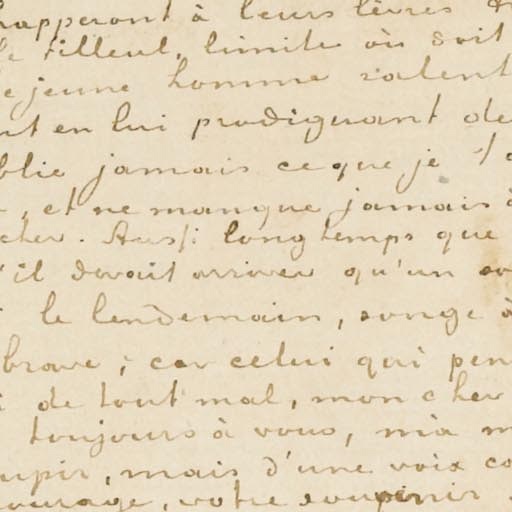 happeront à leurs lèvres
le tilleul, limite où doit
e jeune homme ralent
nt en lui prodiguant de
blie jamais ce que je t'a
, et ne manque jamais à
cher. Aussi longtemps que
'il devait arriver qu'un
le lendemain, songe à
brave ; car celui qui pen
i de tout mal, mon cher
toujours à vous, m'a m
upir, mais d'une voix co
ourage, votre souvenir